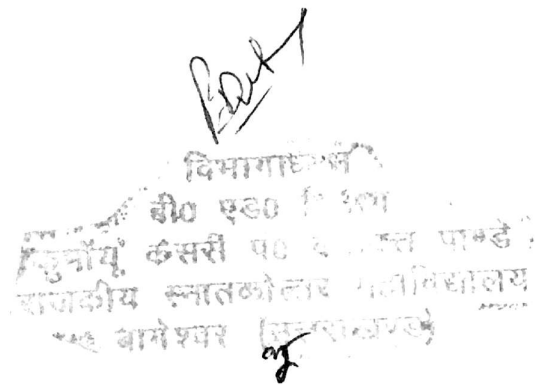 विभागाध्यक्ष
बी0 एड0 विभाग
कुमाँयू केसरी पं0 पाण्डे
राजकीय स्नातकोत्तर महाविद्यालय
बागेश्वर (उत्तराखण्ड)